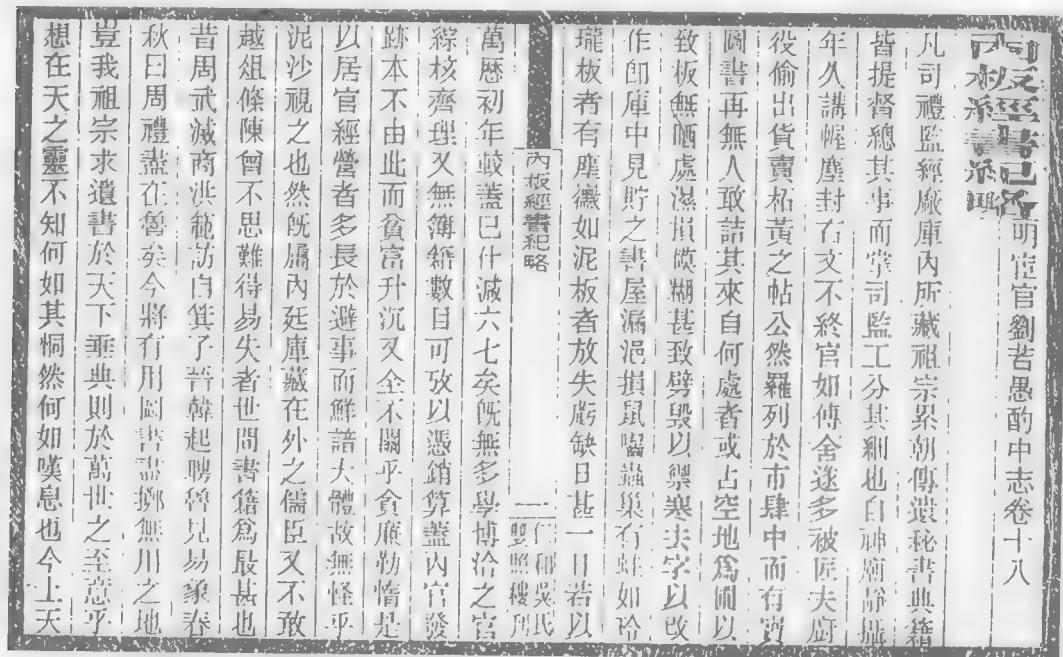 內板經書紀略
明宦官劉若愚酌中志卷十八
凡司禮監經廠庫內所藏祖宗累朝傳遺秘書典籍
皆提督總其事而掌司監工分其細也自神廟靜攝
年久講幄塵封右文不終官如傳舍遂多被匠夫廚
役偷出貨賣柘黃之帖公然羅列於市肆中而有寶
圖書再無人敢詰其來自何處者或占空地為圃以
致板無晒處濕損模糊甚致劈毀以禦寒去字以改
作即庫中見貯之書屋漏浥損鼠嚙蟲巢有蛀如玲
瓏板者有塵黴如泥板者放失虧缺日甚一日若以
內板經書紀略
一
仁和吳氏
雙照樓刊
萬曆初年較蓋已什減六七矣既無多學博洽之官
綜核齊理又無簿籍數目可攷以憑銷算蓋內官發
跡本不由此而貧富升沉又全不關乎貪廉勤惰是
以居官經營者多長於避事而鮮諳大體故無怪乎
泥沙視之也然既屬內廷庫藏在外之儒臣又不敢
越俎條陳曾不思難得易失者世間書籍爲最甚也
昔周武滅商洪範訪自箕子晉韓起聘魯見易象春
秋曰周禮盡在魯矣今將有用圖書盡擲無用之地
豈我祖宗求遺書於天下垂典則於萬世之至意乎
想在天之靈不知何如其恫然何如嘆息也今上天